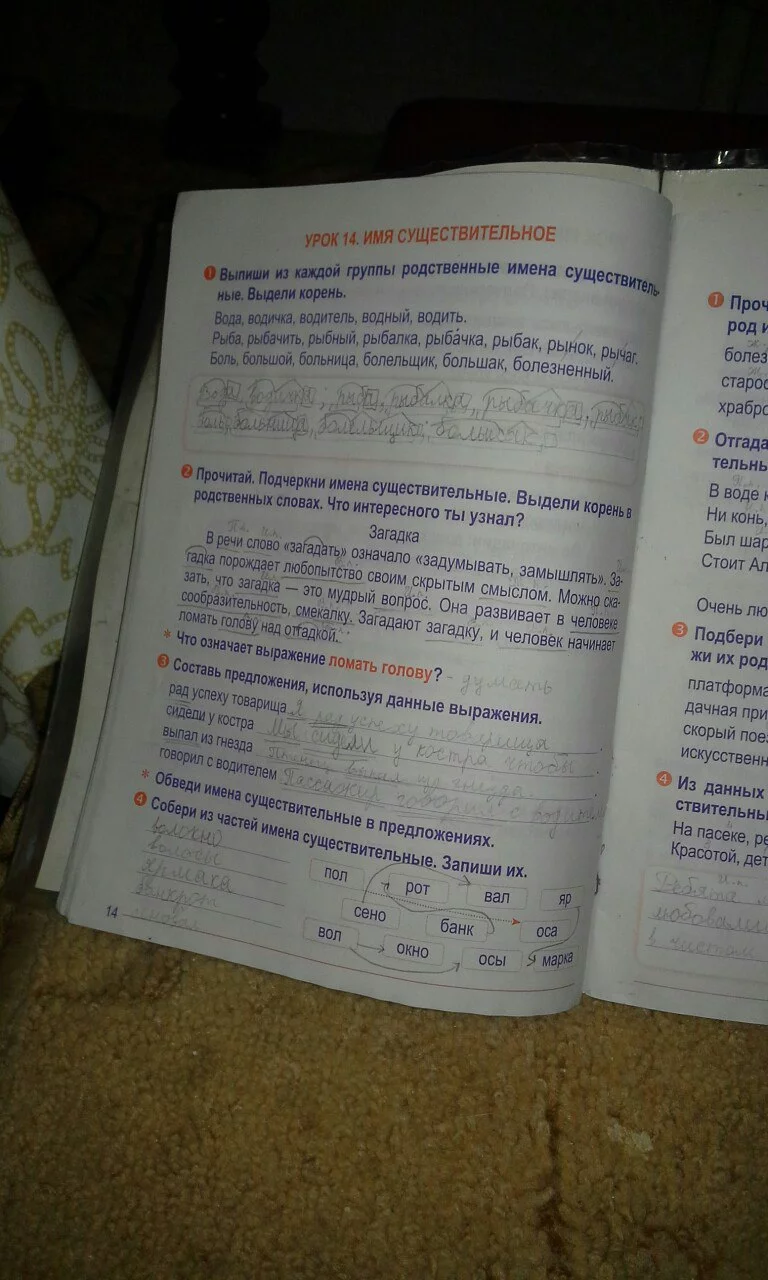 УРОК 14. ИМЯ СУЩЕСТВИТЕЛЬНОЕ
1 Выпиши из каждой группы родственные имена существитель-
ные. Выдели корень.
Вода, водичка, водитель, водный, водить.
Рыба, рыбачить, рыбный, рыбалка, рыба́чка, рыбак, рынок, рычаг.
Боль, большой, больница, болельщик, большак, болезненный.
вода, водичка; рыба, рыбалка, рыбачка, рыбак;
боль, больница, болельщик;
2 Прочитай. Подчеркни имена существительные. Выдели корень в
родственных словах. Что интересного ты узнал?
Загадка
В речи слово «загадать» означало «задумывать, замышлять». За-
гадка порождает любопытство своим скрытым смыслом. Можно ска-
зать, что загадка — это мудрый вопрос. Она развивает в человеке
сообразительность, смекалку. Загадают загадку, и человек начинает
ломать голову над отгадкой.
* Что означает выражение ломать голову? - думать
3 Составь предложения, используя данные выражения.
рад успеху товарища Я рад успеху товарища
сидели у костра Мы сидели у костра чтобы
выпал из гнезда Птенец выпал из гнезда
говорил с водителем Пассажир говорил с
* Обведи имена существительные в предложениях.
4 Собери из частей имена существительные. Запиши их.
волокно
пол
рот
вал
яр
сено
банк
оса
вол
окно
осы
марка
14
1 Проч
род и
болез
старос
храбро
2 Отгада
тельны
В воде к
Ни конь,
Был шар
Стоит Ал
Очень лю
3 Подбери
жи их род
платформа
дачная при
скорый пое
искусственн
4 Из данных
ствительны
На пасеке, ре
Красотой, дет
Ребята
любовали
в чистом